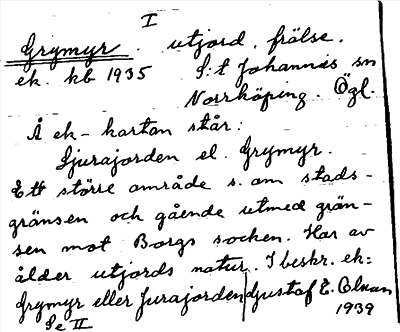 I
Grymyr. utjord, frälse.
ek. kb 1935 S:t Johannes sn
Norrköping. Ögl.
Å ek-kartan står:
Ljurajorden el. Grymyr.
Ett större område s. om stads-
gränsen och gående utmed grän-
sen mot Borgs socken. Har av
ålder utjords natur. I beskr. ek:
Grymyr eller Jurajorden Gustaf E.
Se II 1939